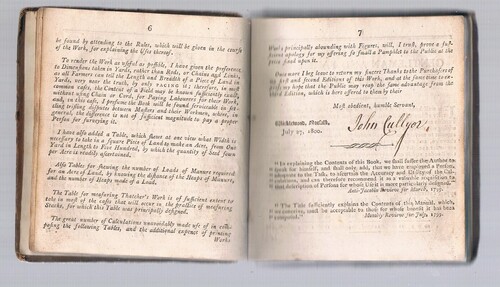 6
be found by attending to the Rules, which will be given in the course
of the Work, for explaining the Uses thereof.
To render the Work as useful as possible, I have given the preference
to Dimensions taken in Yards, rather than Rods, or Chains and Links,
as all Farmers can tell the Length and Breadth of a Piece of Land in
Yards, very near the truth, by only PACING it; therefore, in most
common cases, the Content of a Field may be known sufficiently exact,
without using Chain or Cord, for Paying Labourers for their Work,
and, in this case, I presume the Book will be found serviceable in
settling disputes between Masters and their Workmen, where, in
general, the difference is not of sufficient magnitude to pay a proper
Person for surveying it.
I have also added a Table, which shews at one view what Width is
necessary to take in a square Piece of Land to make an Acre, from One
Yard in Length to Five Hundred, by which the quantity of Seed sown
per Acre is readily ascertained.
Also Tables for shewing the number of Loads of Manure required
for an Acre of Land, by knowing the distance of the Heaps of Manure,
and the number of Heaps made of a Load.
The Table for measuring Thatcher's Work is of sufficient extent to
take in most of the cases that will occur in the practice of measuring
Stacks, for which this Table was principally designed.
The great number of Calculations unavoidably made use of in com-
posing the following Tables, and the additional expence of printing
Works
7
Works principally abounding with Figures, will, I trust, prove a suf-
ficient apology for my offering so small a Pamphlet to the Public at the
price fixed upon it.
Once more I beg leave to return my sincere Thanks to the Purchasers of
my first and second Editions of this Work, and at the same time to ex-
press my hope that the Public may reap the same advantage from the
third Edition, which is here offered to them by their
Most obedient, humble Servant,
Norfolk,
July 27, 1800.
John Cullyer,
"In explaining the Contents of this Book, we shall suffer the Author to
speak for himself, and shall only add, that we have requested a Person,
competent to the Task, to ascertain the Accuracy and Utility of the Cal-
culations, and can therefore recommend it as a valuable acquisition to
that description of Persons for whose Use it is more particularly designed."
Anti-Jacobin Review for March, 1799.
"The Title sufficiently explains the Contents of this Manual, which,
we conceive, must be acceptable to those for whose benefit it has been
compiled."
Monthly Review for July, 1799.